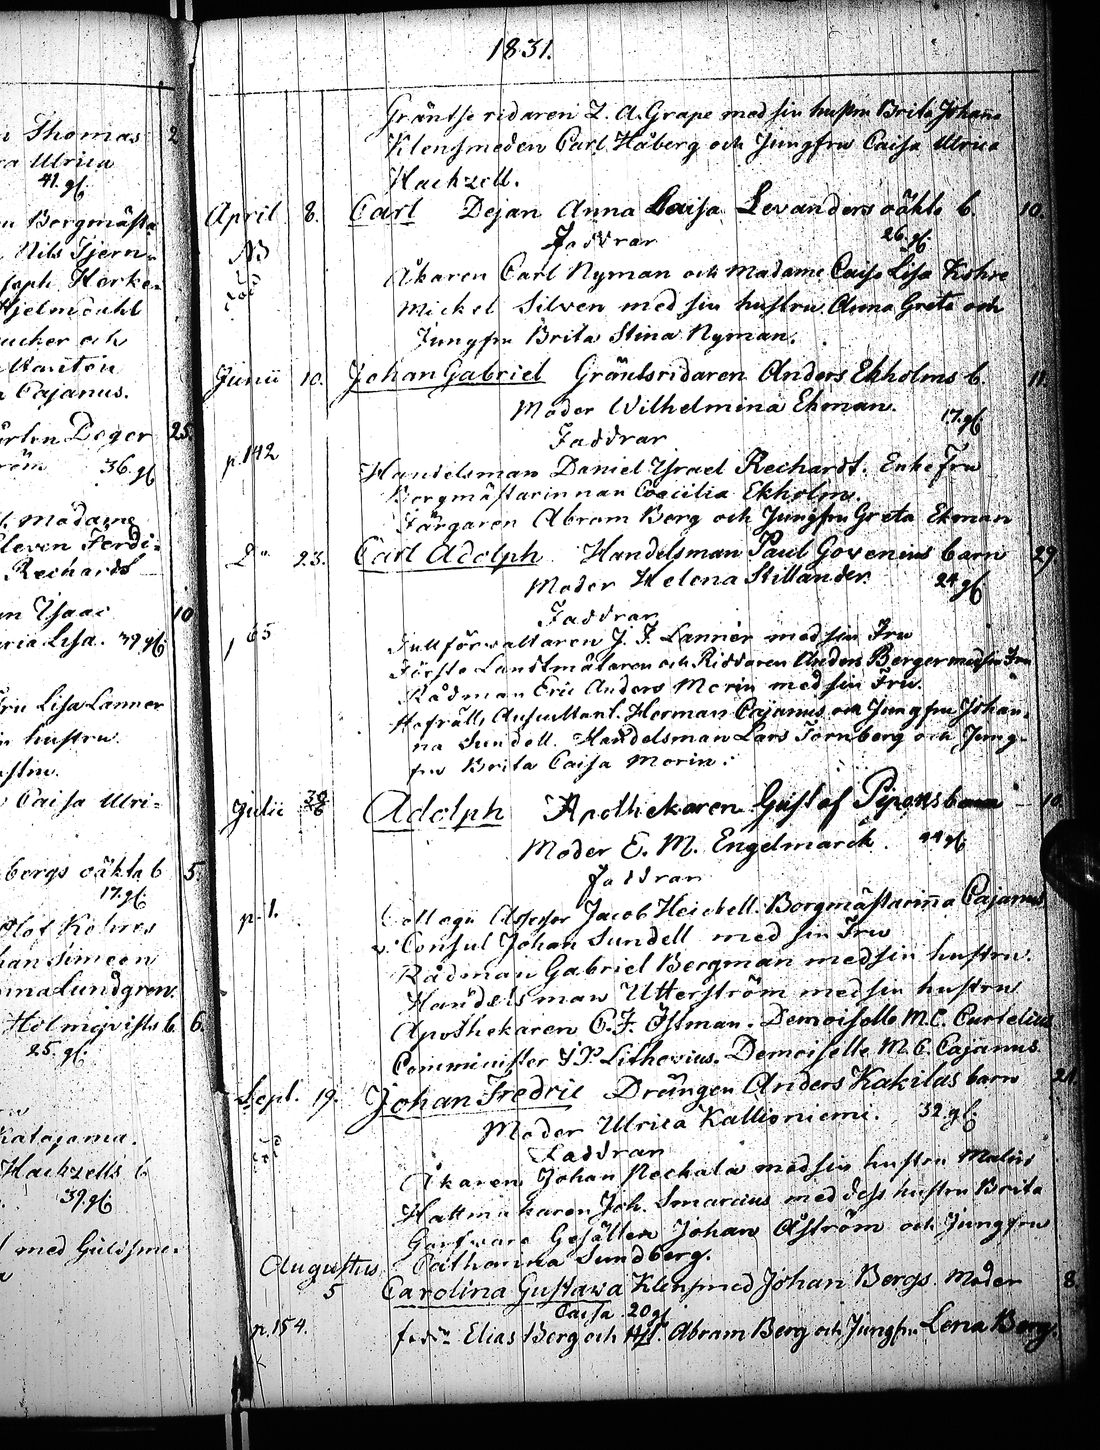 n Thomas 2
ra Ulrica
41. gl.
Bergmästa
Nils Tjern=
Joseph Herke=
Hjelmdahl
och
Cajanus.
Deger 25.
36. gl
Madame
Eleven Ferdi=
Rechardt
Ysaac 10
Maria Lisa. 39 gl.
Fru Lisa Lanner
hustru.
Caisa Ulri=
bergs oäkta b 5.
17. gl.
Olof Köhres
Johan Simeon
Lundgren.
Holmqvists b. 6.
25. gl.
Katajama.
Hackzells b
39. gl
med Guldsme=
1831.
Gräntse ridaren Z. A. Grape med sin hustru Brita Johana
Klensmeden Carl Håberg och Jungfru Caisa Ulrica
Hackzell.
April 8. Carl Dejan Anna Caisa Levanders oäkta b. 10.
NB Faddrar 26. gl.
Åkaren Carl Nyman och Madame Caisa Lisa Köhre
Mickel Silven med sin hustru Anna Greta och
Jungfru Brita Stina Nyman.
Junii 10. Johan Gabriel Gräntsridaren Anders Ekholms b. 11.
Moder Wilhelmina Ekman. 17. gl
Faddrar
p. 142
Handelsman Daniel Ysrael Rechardt. Enke Fru
Borgmästarinnan Coecilia Ekholm.
Färgaren Abram Berg och Jungfru Greta Ekman
D:o 23. Carl Adolph Handelsman Paul Govenius barn 29.
Moder Helena Stillander 24 gl
Faddrar
p 65
Tullförvaltaren J. F. Lanner med sin Fru
Förste Landtmätaren och Riddaren Anders Berger med sin Fru
Rådman Eric Anders Morin med sin Fru.
Hofrätts Auscultant. Herman Cajanus och Jungfru Johan=
na Sundell. Handelsman Lars Tornberg och Jung=
fru Brita Caisa Morin.
Julii Adolph Apothekaren Gustaf Pipons barn 10
Moder E. M. Engelmarck. 44 gl
Faddrar
p. 1.
Collegii Assessor Jacob Heickell. Borgmästarinna Cajanus,
v. Consul Johan Sundell med sin Fru
Rådman Gabriel Bergman med sin hustru.
Handelsman Utterström med sin hustru
Apothekaren C. F. Östman. Demoiselle M. C. Curtelius
Comminister J P Lithovius. Demoiselle M. C. Cajanus.
Sept. 19. Johan Fredric Drängen Anders Kakilas barn 21.
Moder Ulrica Kallioniemi. 32. gl.
Faddrar
Åkaren Johan Pechala med sin hustru Malin
Hattmakaren Joh. Smarcius med dess hustru Brita
Garfware Gesällen Johan Åström och Jungfru
Catharina Sundberg.
Augustus
5 Carolina Gustawa Klensmed Johan Bergs. Moder 8.
Caisa. 20 gl
p. 154. fadd: Elias Berg och Abram Berg och Jungfru Lena Berg.